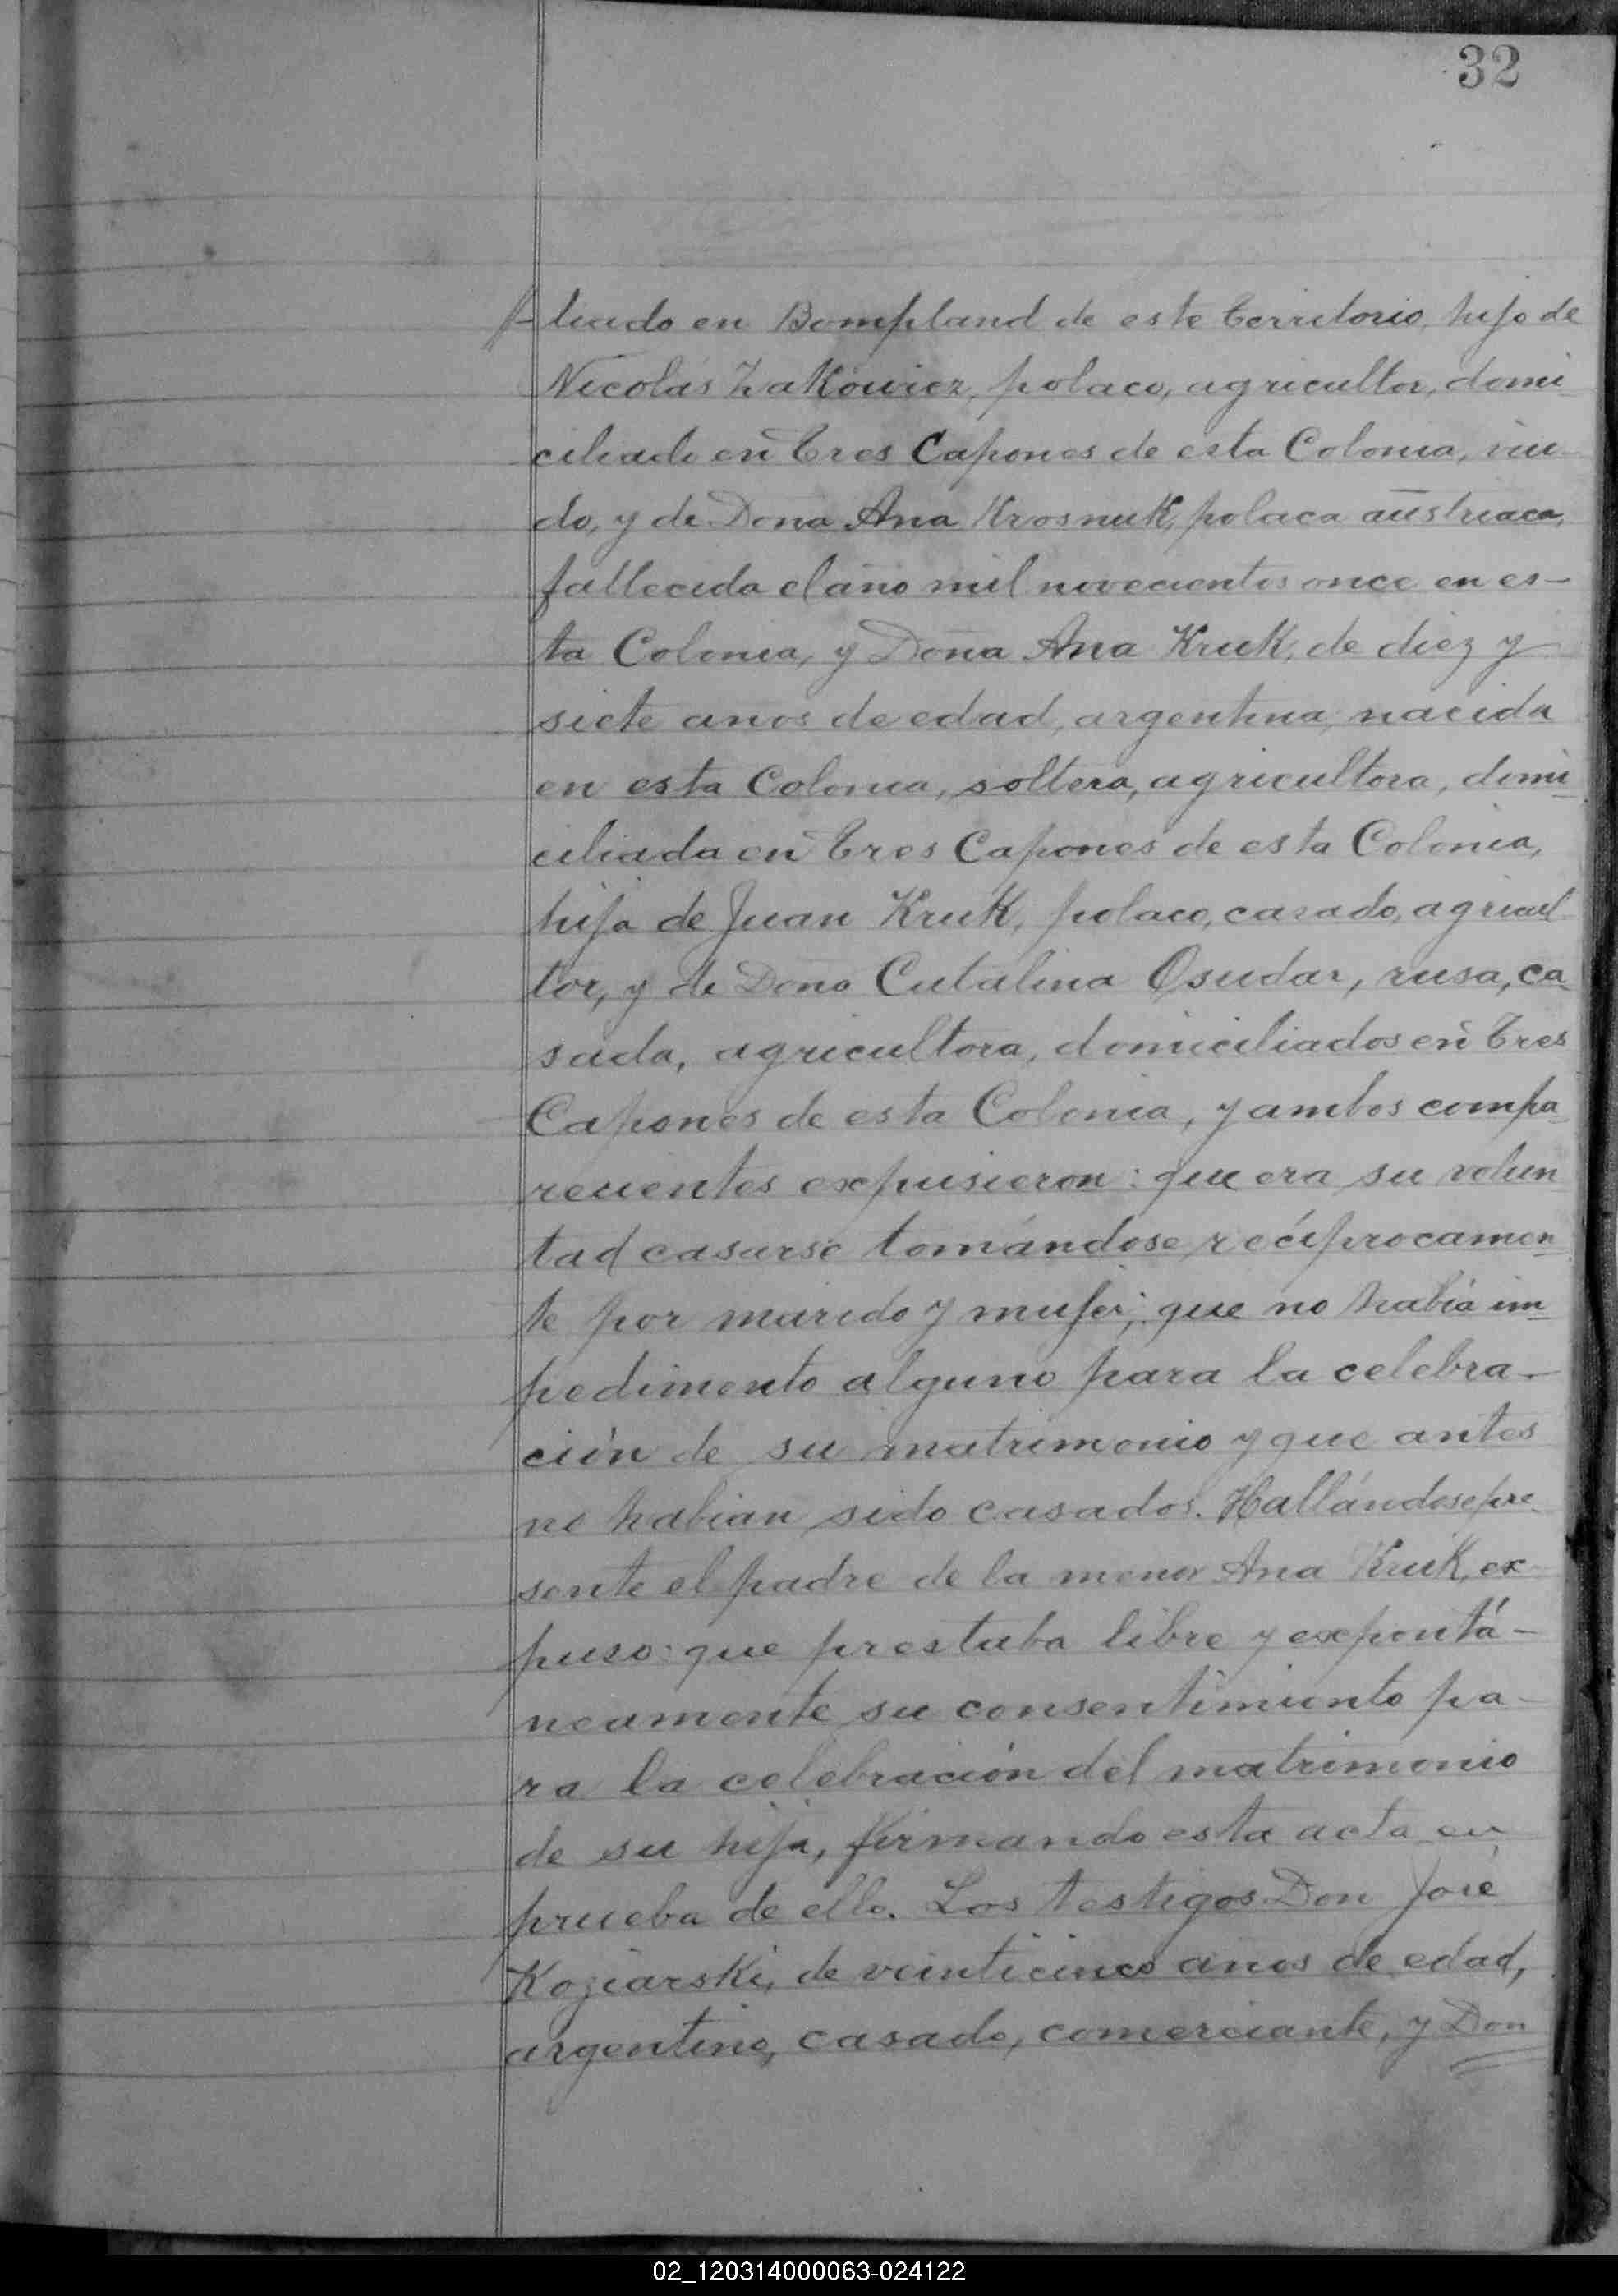 32
liado en Bompland de este territorio, hijo de
Nicolás Zakówicz, polaco, agricultor, domi
ciliado en Tres Capones de esta Colonia, viu
do, y de Doña Ana Krosnuk, polaca austriaca,
fallecida el año mil novecientos once en es-
ta Colonia, y Doña Ana Kruk, de diez y
siete años de edad, argentina, nacida
en esta Colonia, soltera, agricultora, domi
ciliada en Tres Capones de esta Colonia,
hija de Juan Kruk, polaco, casado, agricul
tor, y de Doña Catalina Osudar, rusa, ca
sada, agricultora, domiciliados en Tres
Capones de esta Colonia, y ambos compa
recientes expusieron: que era su volun
tad casarse tomándose recíprocamen
te por marido y mujer; que no había im
pedimento alguno para la celebra-
ción de su matrimonio y que antes
no habian sido casados. Hallándose pre
sente el padre de la menor Ana Kruk, ex
puso: que prestaba libre y expontá-
neamente su consentimiento pa-
ra la celebración del matrimonio
de su hija, firmando esta acta en
prueba de ello. Los testigos Don José
Koziarski, de veinticinco años de edad,
argentino, casado, comerciante, y Don
02_120314000063-024122